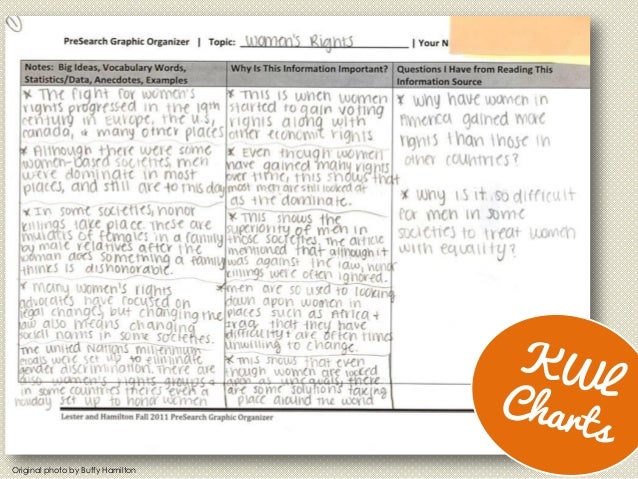 ①
PreSearch Graphic Organizer | Topic: Women's Rights | Your N
Notes: Big Ideas, Vocabulary Words,
Statistics/Data, Anecdotes, Examples
* The fight for women's
rights progressed in the 19th
century in Europe, the U.S,
Canada, & many other places
* Although there were some
women-based societies, men
were dominate in most
places, and still are to this day
* In some societies, honor
killings take place. These are
murders of females in a family
by male relatives after the
woman does something a family
thinks is dishonorable.
* many women's rights
advocates have focused on
legal changes, but changing the
law also means changing
social norms in some societies.
The United Nations millennium
goals were set up to eliminate
gender discrimination. There are
also women's rights groups &
in some countries there's even a
holiday set up to honor women
Why Is This Information Important?
* This is when women
started to gain voting
rights along with
other economic rights
* Even though women
have gained many rights
over time, this shows that
most men are still looked at
as the dominate.
* This shows the
superiority of men in
those societies. The article
mentioned that although it
was against the law, honor
killings were often ignored.
* men are so used to looking
down upon women in
places such as Africa &
Iraq, that they have
difficulty & are often times
unwilling to change.
* This shows that even
though women are looked
upon as unequals, there
are some solutions taking
place around the world
Questions I Have from Reading This
Information Source
* Why have women in
America gained more
rights than those in
other countries?
* Why is it so difficult
for men in some
societies to treat women
with equality?
Lester and Hamilton Fall 2011 PreSearch Graphic Organizer
KWL
Charts
Original photo by Buffy Hamilton